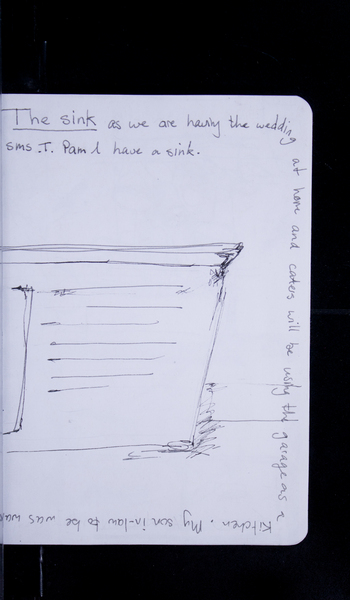 The sink as we are having the wedding
at home and caters will be using the garage as a
Kitchen. My son in-law to be was
sms .T. Pam I have a sink.